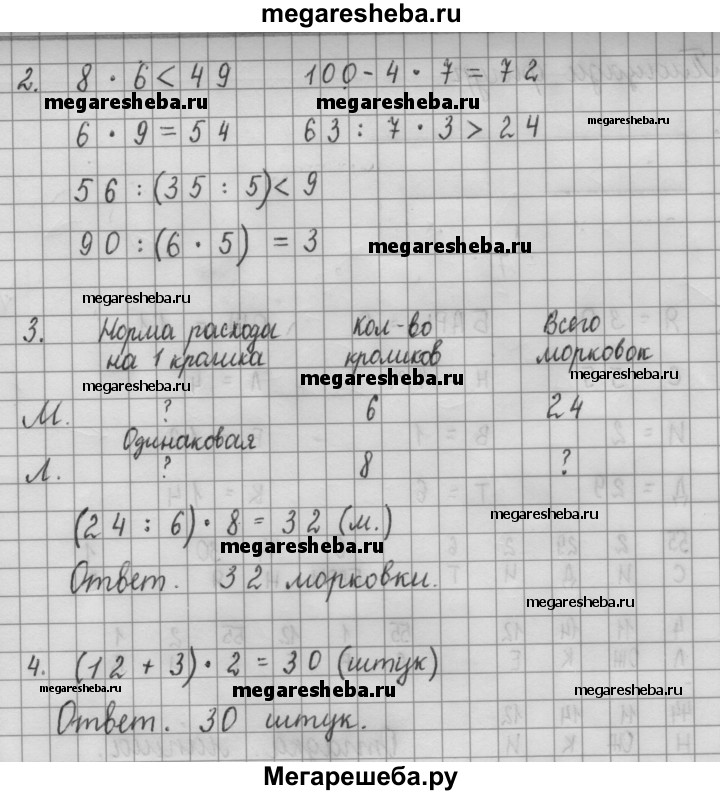 megaresheba.ru
2. 8 · 6 < 49 100 - 4 · 7 = 72
megaresheba.ru megaresheba.ru
6 · 9 = 54 63 : 7 · 3 > 24 megaresheba.ru
56 : (35 : 5) < 9
90 : (6 · 5) = 3 megaresheba.ru
megaresheba.ru
3. Норма расхода Кол-во Всего
на 1 кролика кроликов морковок
megaresheba.ru megaresheba.ru megaresheba.ru
М. ? 6 24
Одинаковая
Л. ? 8 ?
(24 : 6) · 8 = 32 (м.) megaresheba.ru
megaresheba.ru
Ответ. 32 морковки.
megaresheba.ru
4. (12 + 3) · 2 = 30 (штук)
megaresheba.ru megaresheba.ru megaresheba.ru
Ответ. 30 штук.
Мегарешеба.ру